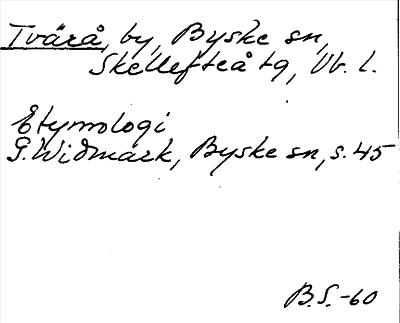 Tvärå, by, Byske sn,
Skellefteå tg, Vb. l.
Etymologi
G. Widmark, Byske sn, s. 45
B.S.-60